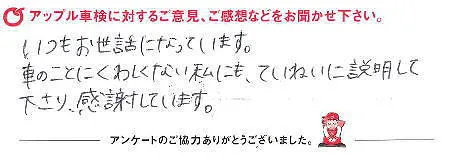 アップル車検に対するご意見、ご感想などをお聞かせ下さい。
いつもお世話になっています。
車のことにくわしくない私にも、ていねいに説明して
下さり、感謝しています。
アンケートのご協力ありがとうございました。